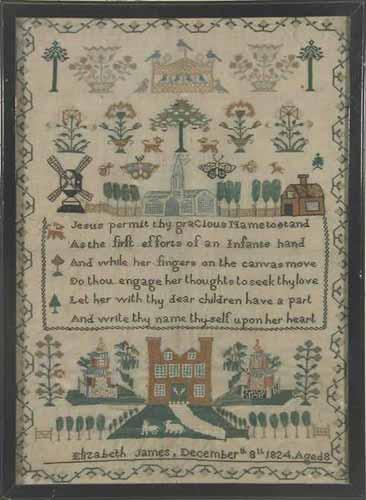 Jesus permit thy gracious Name to stand
As the first efforts of an Infants hand
And while her fingers on the canvas move
Do thou engage her thoughts to seek thy love
Let her with thy dear children have a part
And write thy name thy self upon her heart
Elizabeth James, December th 8th 1824, Aged 8